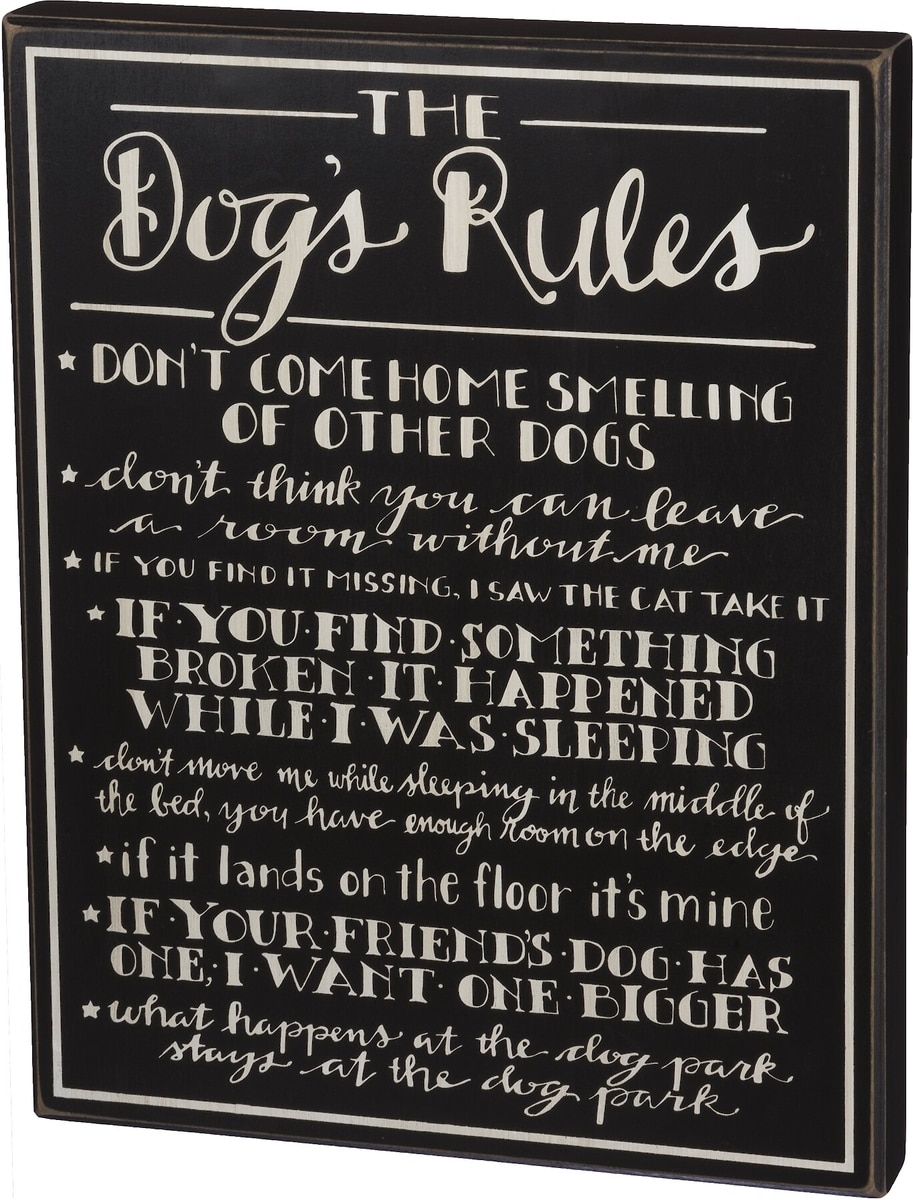 THE
Dog's Rules
DON'T COME HOME SMELLING
OF OTHER DOGS
don't think you can leave
a room without me
IF YOU FIND IT MISSING, I SAW THE CAT TAKE IT
IF·YOU·FIND·SOMETHING
BROKEN·IT·HAPPENED
WHILE·I·WAS·SLEEPING
don't move me while sleeping in the middle of
the bed, you have enough room on the edge
if it lands on the floor it's mine
IF·YOUR·FRIEND'S·DOG·HAS
ONE,·I·WANT·ONE·BIGGER
what happens at the dog park
stays at the dog park